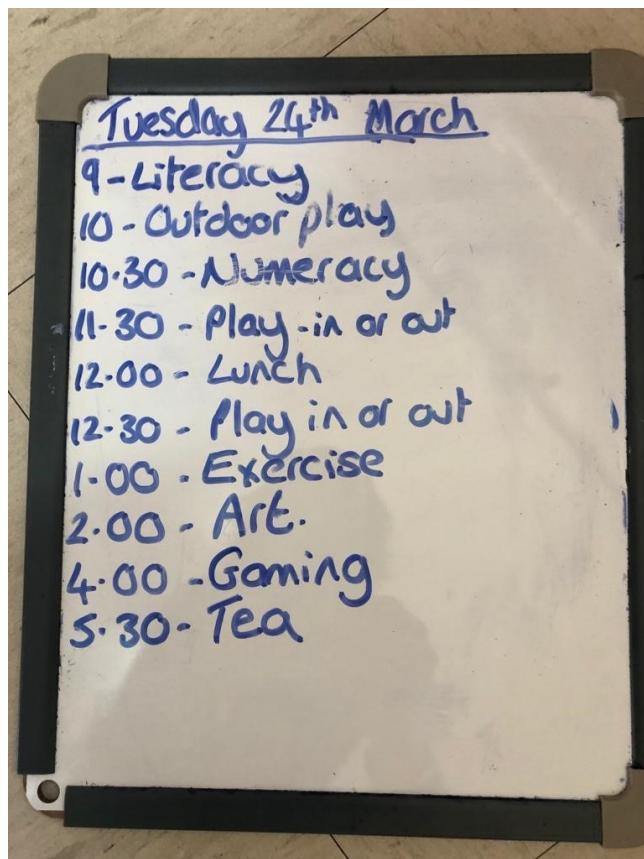 Tuesday 24th March
9-Literacy
10-Outdoor play
10.30-Numeracy
11.30-Play-in or out
12.00-Lunch
12.30-Play in or out
1.00-Exercise
2.00-Art.
4.00-Gaming
5.30-Tea